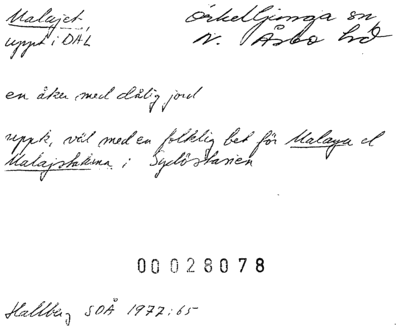 Malajet,
uppt i DAL
Örkelljunga sn,
N. Åsbo hd
en åker med dålig jord
uppk, väl med en folklig bet för Malaya el
Malajstaterna i Sydöstasien
00028078
Hallberg SOÅ 1972:65